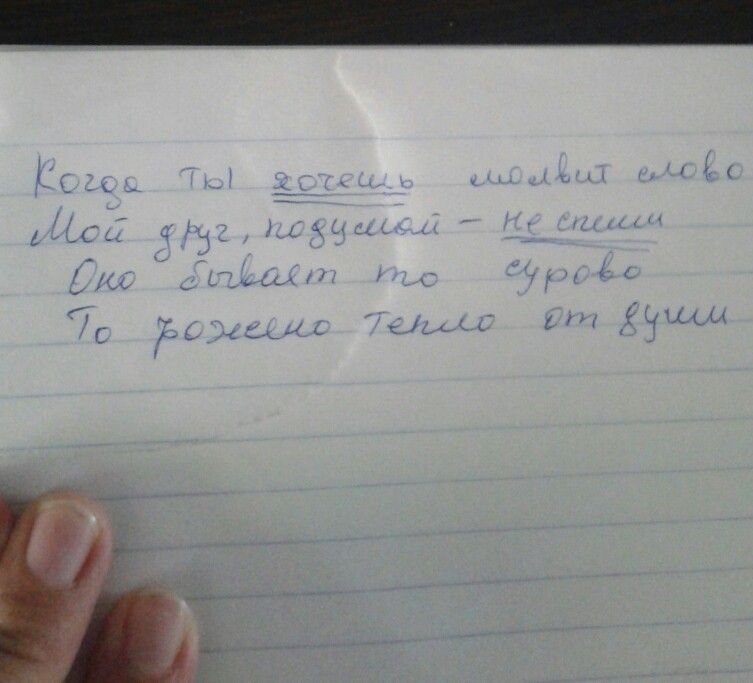 Когда ты хочешь молвит слово
Мой друг, подумай - не спеши
Оно бывает то сурово
То рожено тепло от души